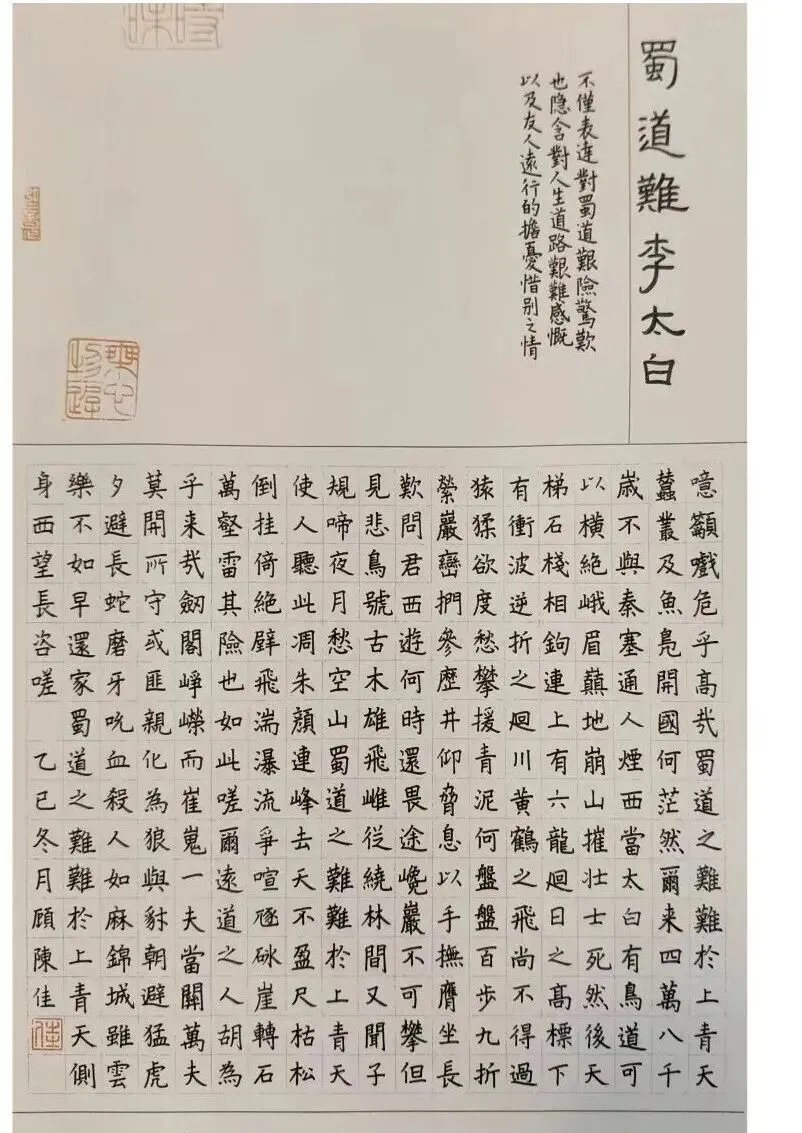 蜀道難李太白
不僅表達對蜀道艱險驚歎
也隐含對人生道路艱難感慨
以及友人遠行的擔憂惜别之情
噫籲嚱危乎高哉蜀道之難難於上青天
蠶叢及魚鳧開國何茫然爾来四萬八千
歲不與秦塞通人煙西當太白有鳥道可
以橫絶峨眉巔地崩山摧壯士死然後天
梯石棧相鉤連上有六龍廻日之高標下
有衝波逆折之廻川黃鶴之飛尚不得過
猿猱欲度愁攀援青泥何盤盤百步九折
縈巖巒捫參歷井仰脅息以手撫膺坐長
歎問君西遊何時還畏途巉巖不可攀但
見悲鳥號古木雄飛雌從繞林間又聞子
規啼夜月愁空山蜀道之難難於上青天
使人聽此凋朱顏連峰去天不盈尺枯松
倒挂倚絶壁飛湍瀑流爭喧豗砯崖轉石
萬壑雷其險也如此嗟爾遠道之人胡為
乎来哉劒閣崢嶸而崔嵬一夫當關萬夫
莫開所守或匪親化為狼與豺朝避猛虎
夕避長蛇磨牙吮血殺人如麻錦城雖雲
樂不如早還家蜀道之難難於上青天側
身西望長咨嗟 乙巳冬月顧陳佳